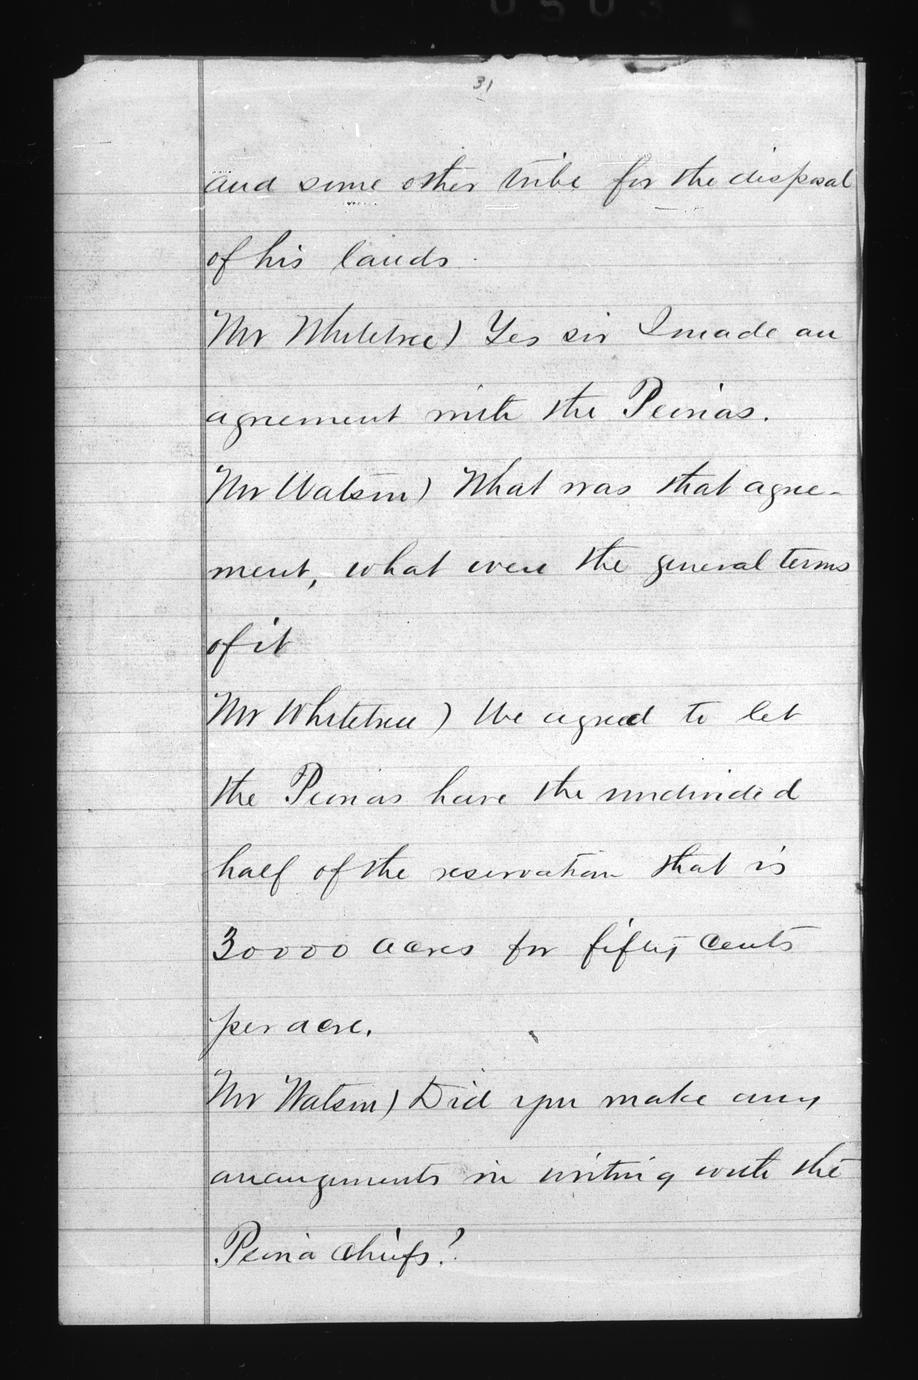 31
and some other tribe for the disposal
of his lands.
Mr Whitetree) Yes sir I made an
agreement with the Peorias.
Mr Watson) What was that agree-
ment, what were the general terms
of it
Mr Whitetree) We agreed to let
the Peorias have the undivided
half of the reservation that is
30000 acres for fifty cents
per acre.
Mr Watson) Did you make any
arrangements in writing with the
Peoria Chiefs?